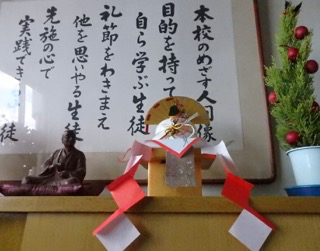 本校のめざす人間像
目的を持って
自ら学ぶ生徒
礼節をわきまえ
他を思いやる生徒
先施の心で
実践でき
生徒